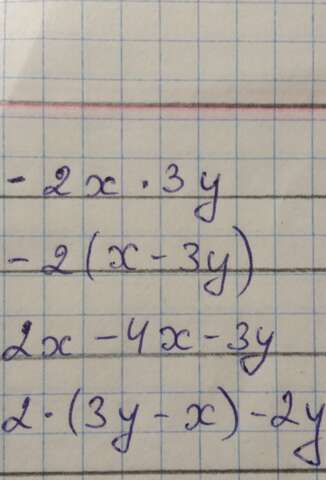 - 2x · 3y
- 2(x - 3y)
2x - 4x - 3y
2 · (3y - x) - 2y